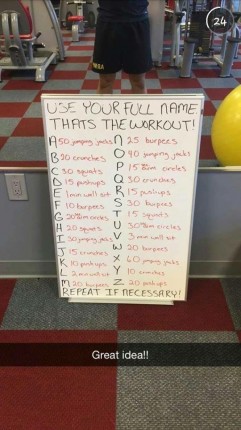 24
USE YOUR FULL NAME.
THATS THE WORKOUT!
A 50 jumping jacks N 25 burpees
B 20 crunches O 40 jumping jacks
C 30 squats P 15 arm circles
D 15 pushups Q 30 crunches
E 1 min wall sit R 15 pushups
F 10 burpees S 30 burpees
G 20 arm circles T 15 squats
H 20 squats U 30 arm circles
I 30 jumping jacks V 3 min wall sit
J 15 crunches W 20 burpees
K 10 pushups X 60 jumping jacks
L 2 min wall sit Y 10 crunches
M 20 burpees Z 20 pushups
REPEAT IF NECESSARY!
Great idea!!